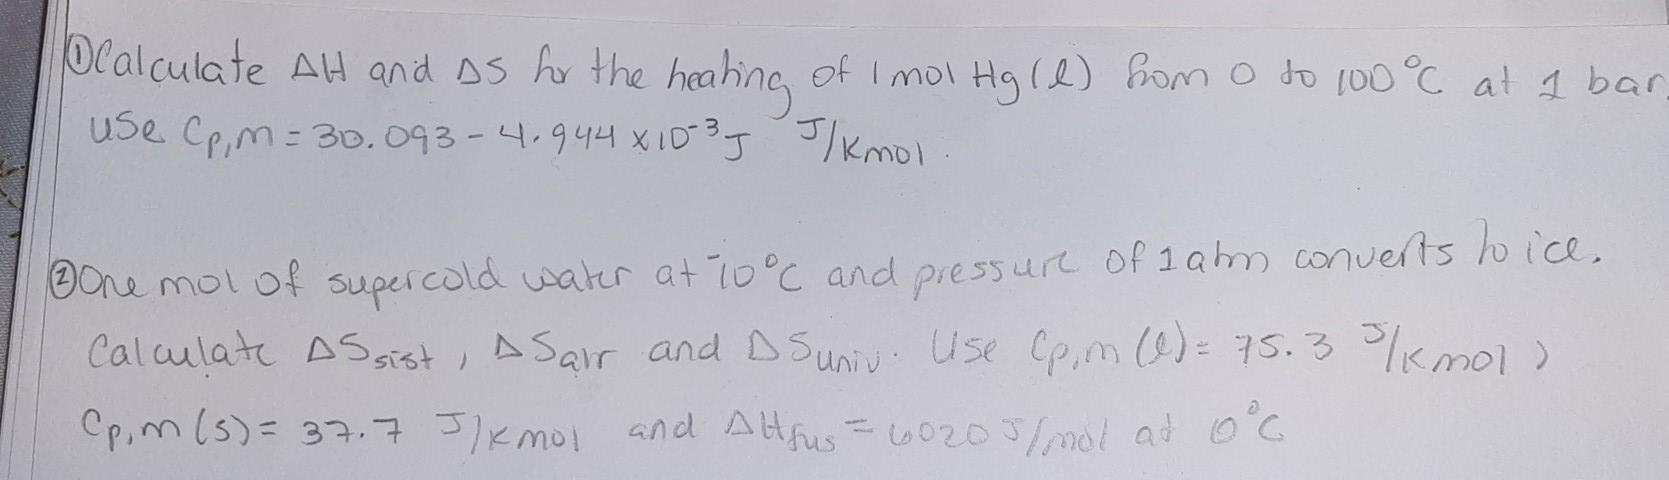 ①Calculate ΔH and ΔS for the heating of 1 mol Hg(l) from 0 to 100°C at 1 bar.
Use Cp,m = 30.093 - 4.944 x10⁻³J J/Kmol.
②One mol of supercold water at -10°C and pressure of 1 atm converts to ice.
Calculate ΔSsist, ΔSarr and ΔSuniv. Use Cp,m (l) = 75.3 J/Kmol,
Cp,m (s) = 37.7 J/Kmol and ΔHfus = 6020 J/mol at 0°C